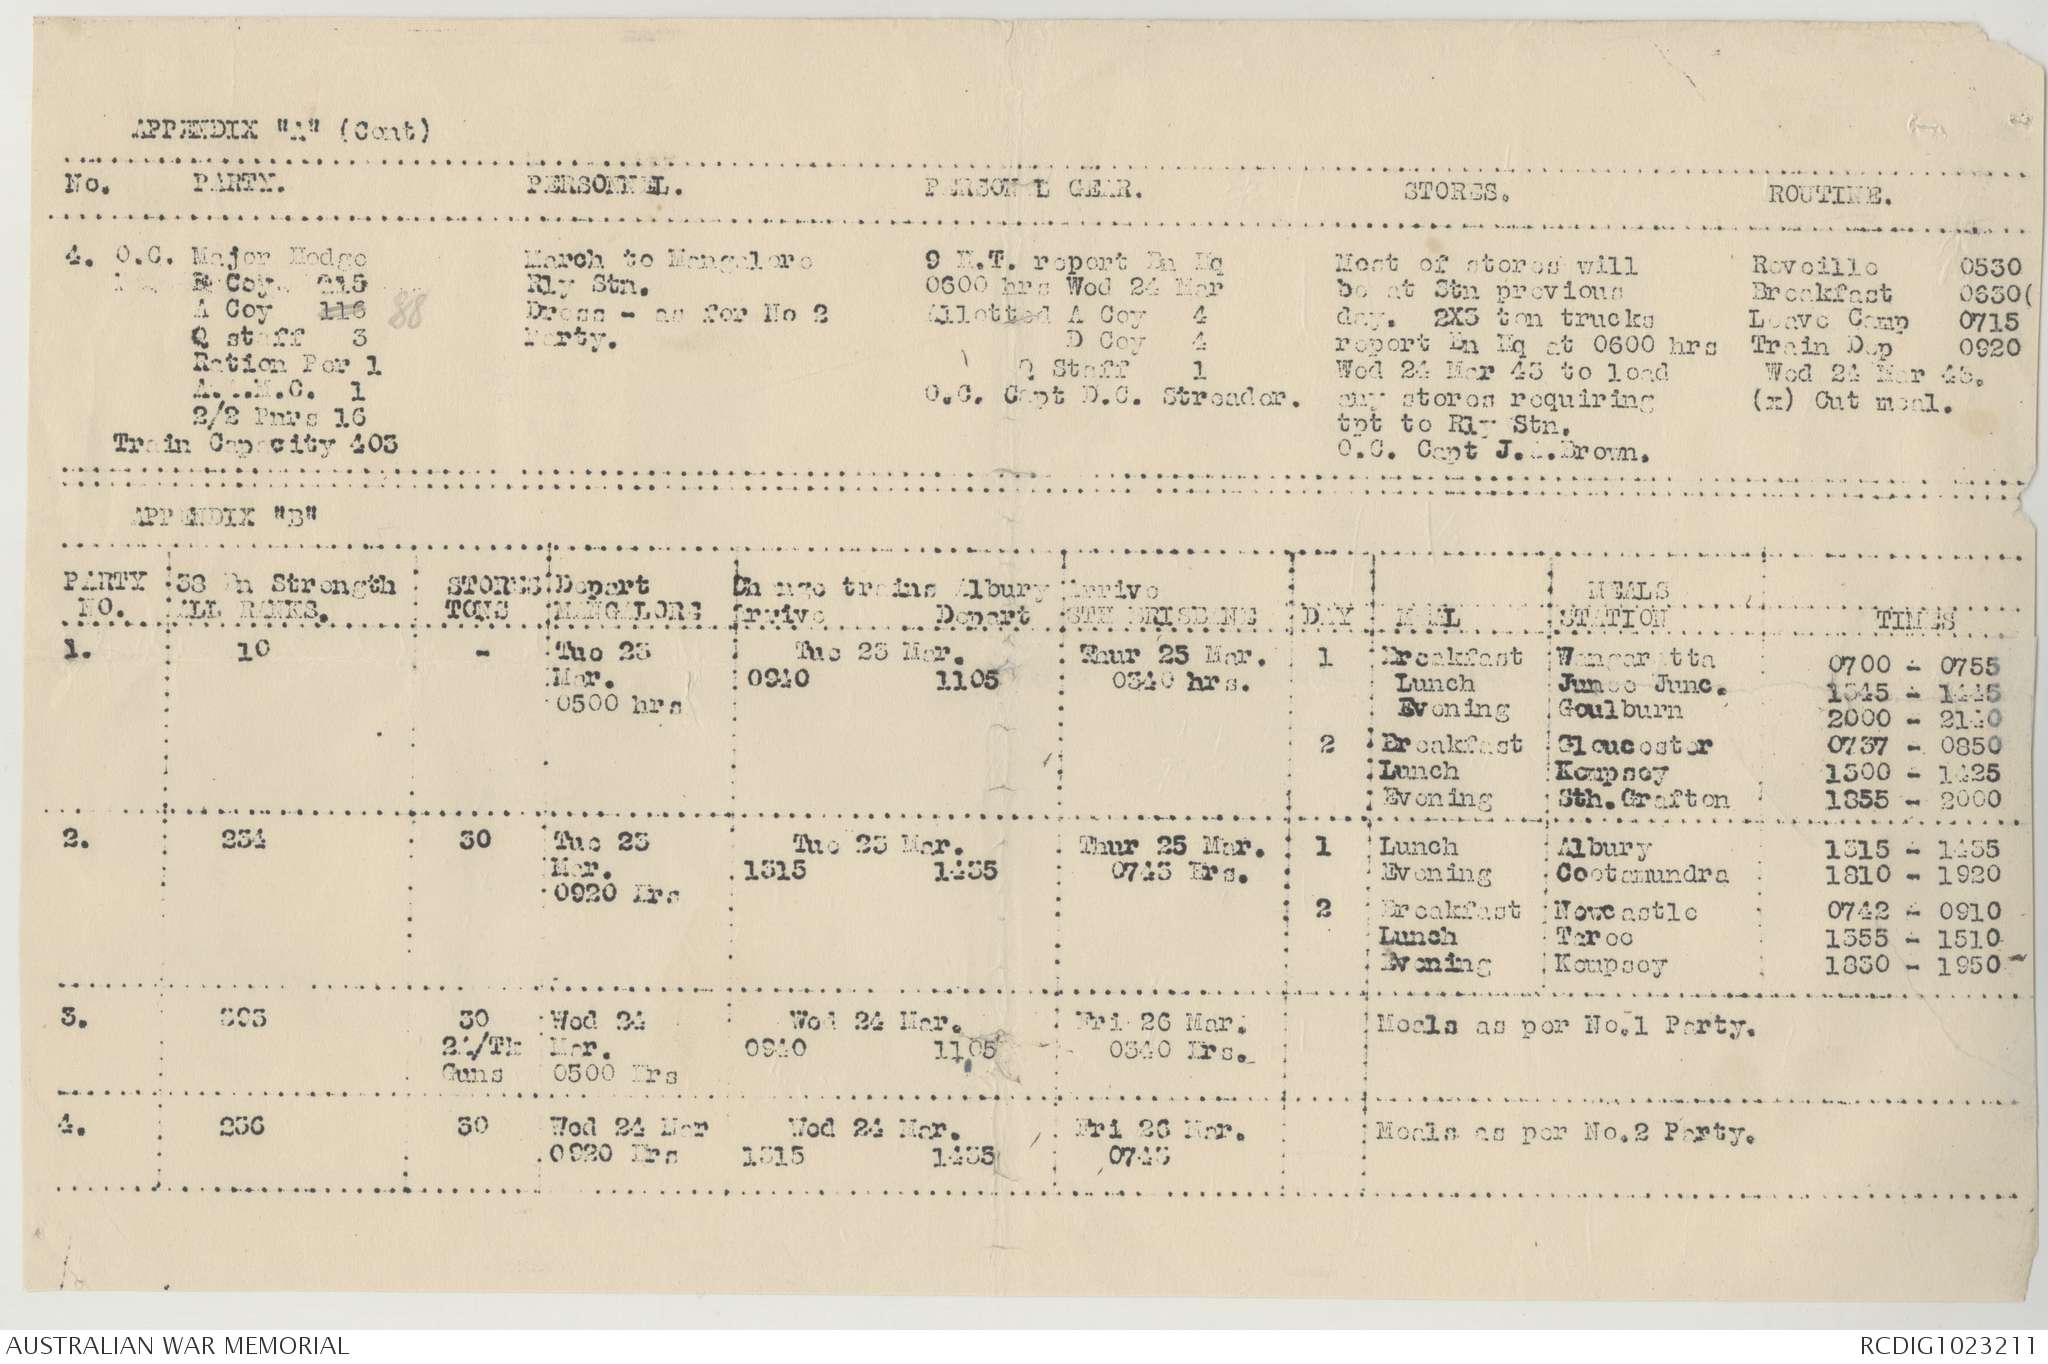 APPENDIX "A" (Cont)
No. PARTY. PERSONNEL. PERSON L GEAR. STORES. ROUTINE.
4. O.C. Major Hodge March to Mangalore 9 M.T. report Bn Hq Most of stores will Reveille 0530
Coy. 215 Rly Stn. 0600 hrs Wed 24 Mar be at Stn previous Breakfast 0630(
A Coy 116 88 Dress - as for No 2 Allotted A Coy 4 day. 2X3 ton trucks Leave Camp 0715
Q staff 3 Party. D Coy 4 report Bn Hq at 0600 hrs Train Dep 0920
Ration Per 1 Q Staff 1 Wed 24 Mar 43 to load Wed 24 Mar 43.
A.A.M.C. 1 O.C. Capt D.C. Streader. any stores requiring (x) Cut meal.
2/2 Pnrs 16 tpt to Rly Stn.
Train Capacity 403 O.C. Capt J.A.Brown.
APPENDIX "B"
PARTY 58 Bn Strength STORES Depart Change trains Albury Arrive MEALS
NO. ALL RANKS. TONS MANGALORE Arrive Depart STH BRISBANE DAY MEAL STATION TIMES
1. 10 - Tue 23 Tue 23 Mar. Thur 25 Mar. 1 Breakfast Wangaratta 0700 - 0755
Mar. 0940 1105 0340 hrs. Lunch Junee Junc. 1345 - 1445
0500 hrs Evening Goulburn 2000 - 2140
2 Breakfast Gloucester 0737 - 0850
Lunch Kempsey 1300 - 1425
Evening Sth.Grafton 1855 - 2000
2. 234 30 Tue 23 Tue 23 Mar. Thur 25 Mar. 1 Lunch Albury 1315 - 1435
Mar. 1315 1435 0743 Hrs. Evening Cootamundra 1810 - 1920
0920 Hrs 2 Breakfast Newcastle 0742 - 0910
Lunch Taree 1355 - 1510
Evening Kempsey 1830 - 1950
3. 393 30 Wed 24 Wed 24 Mar. Fri 26 Mar. Meals as per No.1 Party.
2A/Tk Mar. 0940 1105 0340 Hrs.
Guns 0500 Hrs
4. 236 30 Wed 24 Mar Wed 24 Mar. Fri 26 Mar. Meals as per No.2 Party.
0920 Hrs 1315 1435 0743
AUSTRALIAN WAR MEMORIAL RCDIG1023211